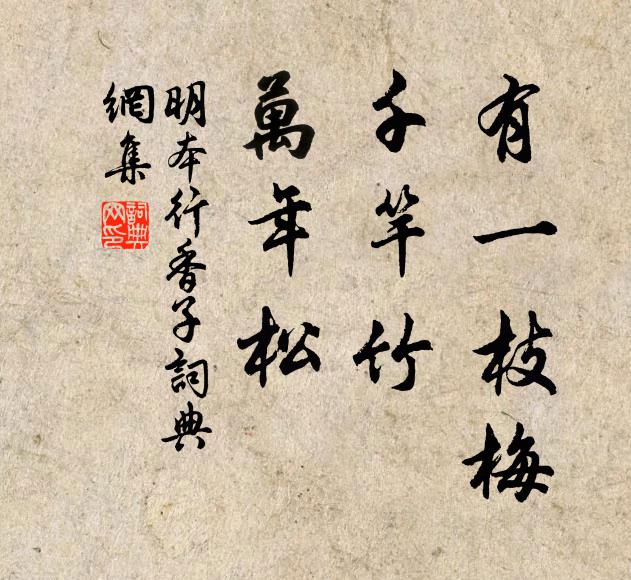 有一枝梅
千竿竹
萬年松
明本行香子詞典
網集
詞典
网印